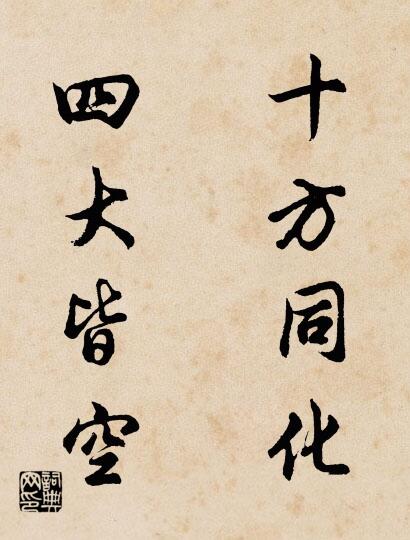 十方同化
四大皆空
詞典网印